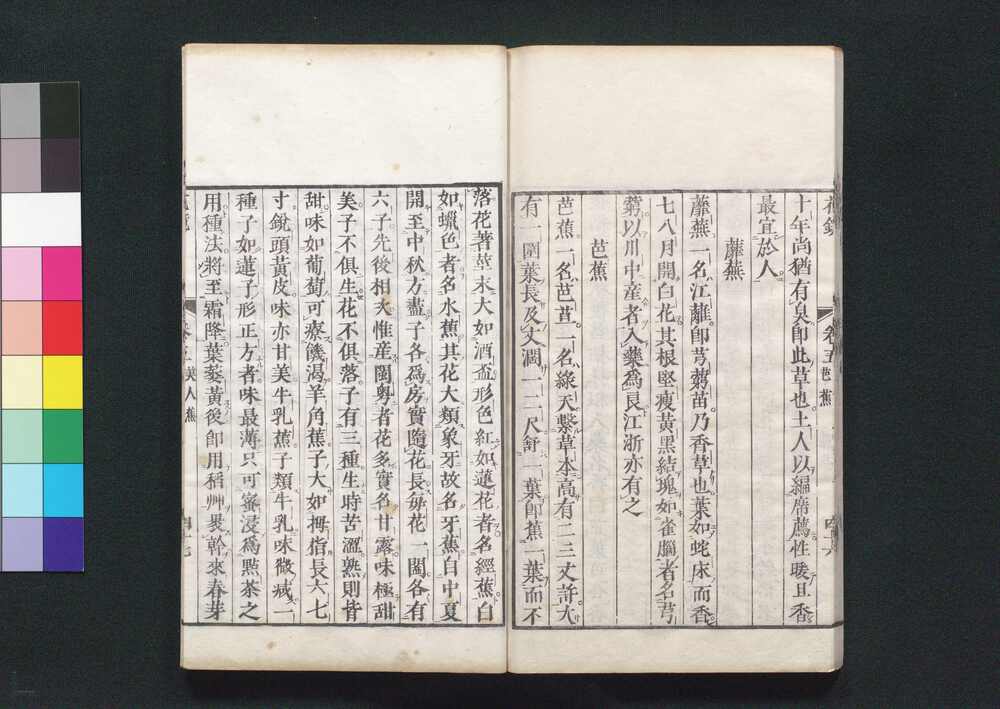 花鏡 卷五 芭蕉 四十六
十年尚猶有臭卽此草也土人以編席薦性暖且香
最宜於人
蘼蕪
蘼蕪一名江蘺卽芎藭苗乃香草也葉如蛇床而香
七八月開白花其根堅瘦黃黑結塊如雀腦者名芎
藭以川中產者入藥爲良江浙亦有之
芭蕉
芭蕉一名芭苴一名綠天繫草本高有二三丈許大
有一圍葉長及丈濶一二尺舒一葉卽蕉一葉而不
落花著莖末大如酒盃形色紅如蓮花者名經蕉白
如蠟色者名水蕉其花大類象牙故名牙蕉自中夏
開至中秋方盡子各爲房實隨花長每花一闔各有
六子先後相次惟産閩粤者花多實名甘露味極甜
美子不俱生花不俱落子有三種生時苦澀熟則皆
甜味如葡萄可療饑渴羊角蕉子大如拇指長六七
寸銳頭黃皮味亦甘美牛乳蕉子類牛乳味微減一
種子如蓮子形正方者味最薄只可蜜浸爲點茶之
用種法將至霜降葉萎黃後卽用稻艸褁幹來春芽
卷五 美人蕉 四十七